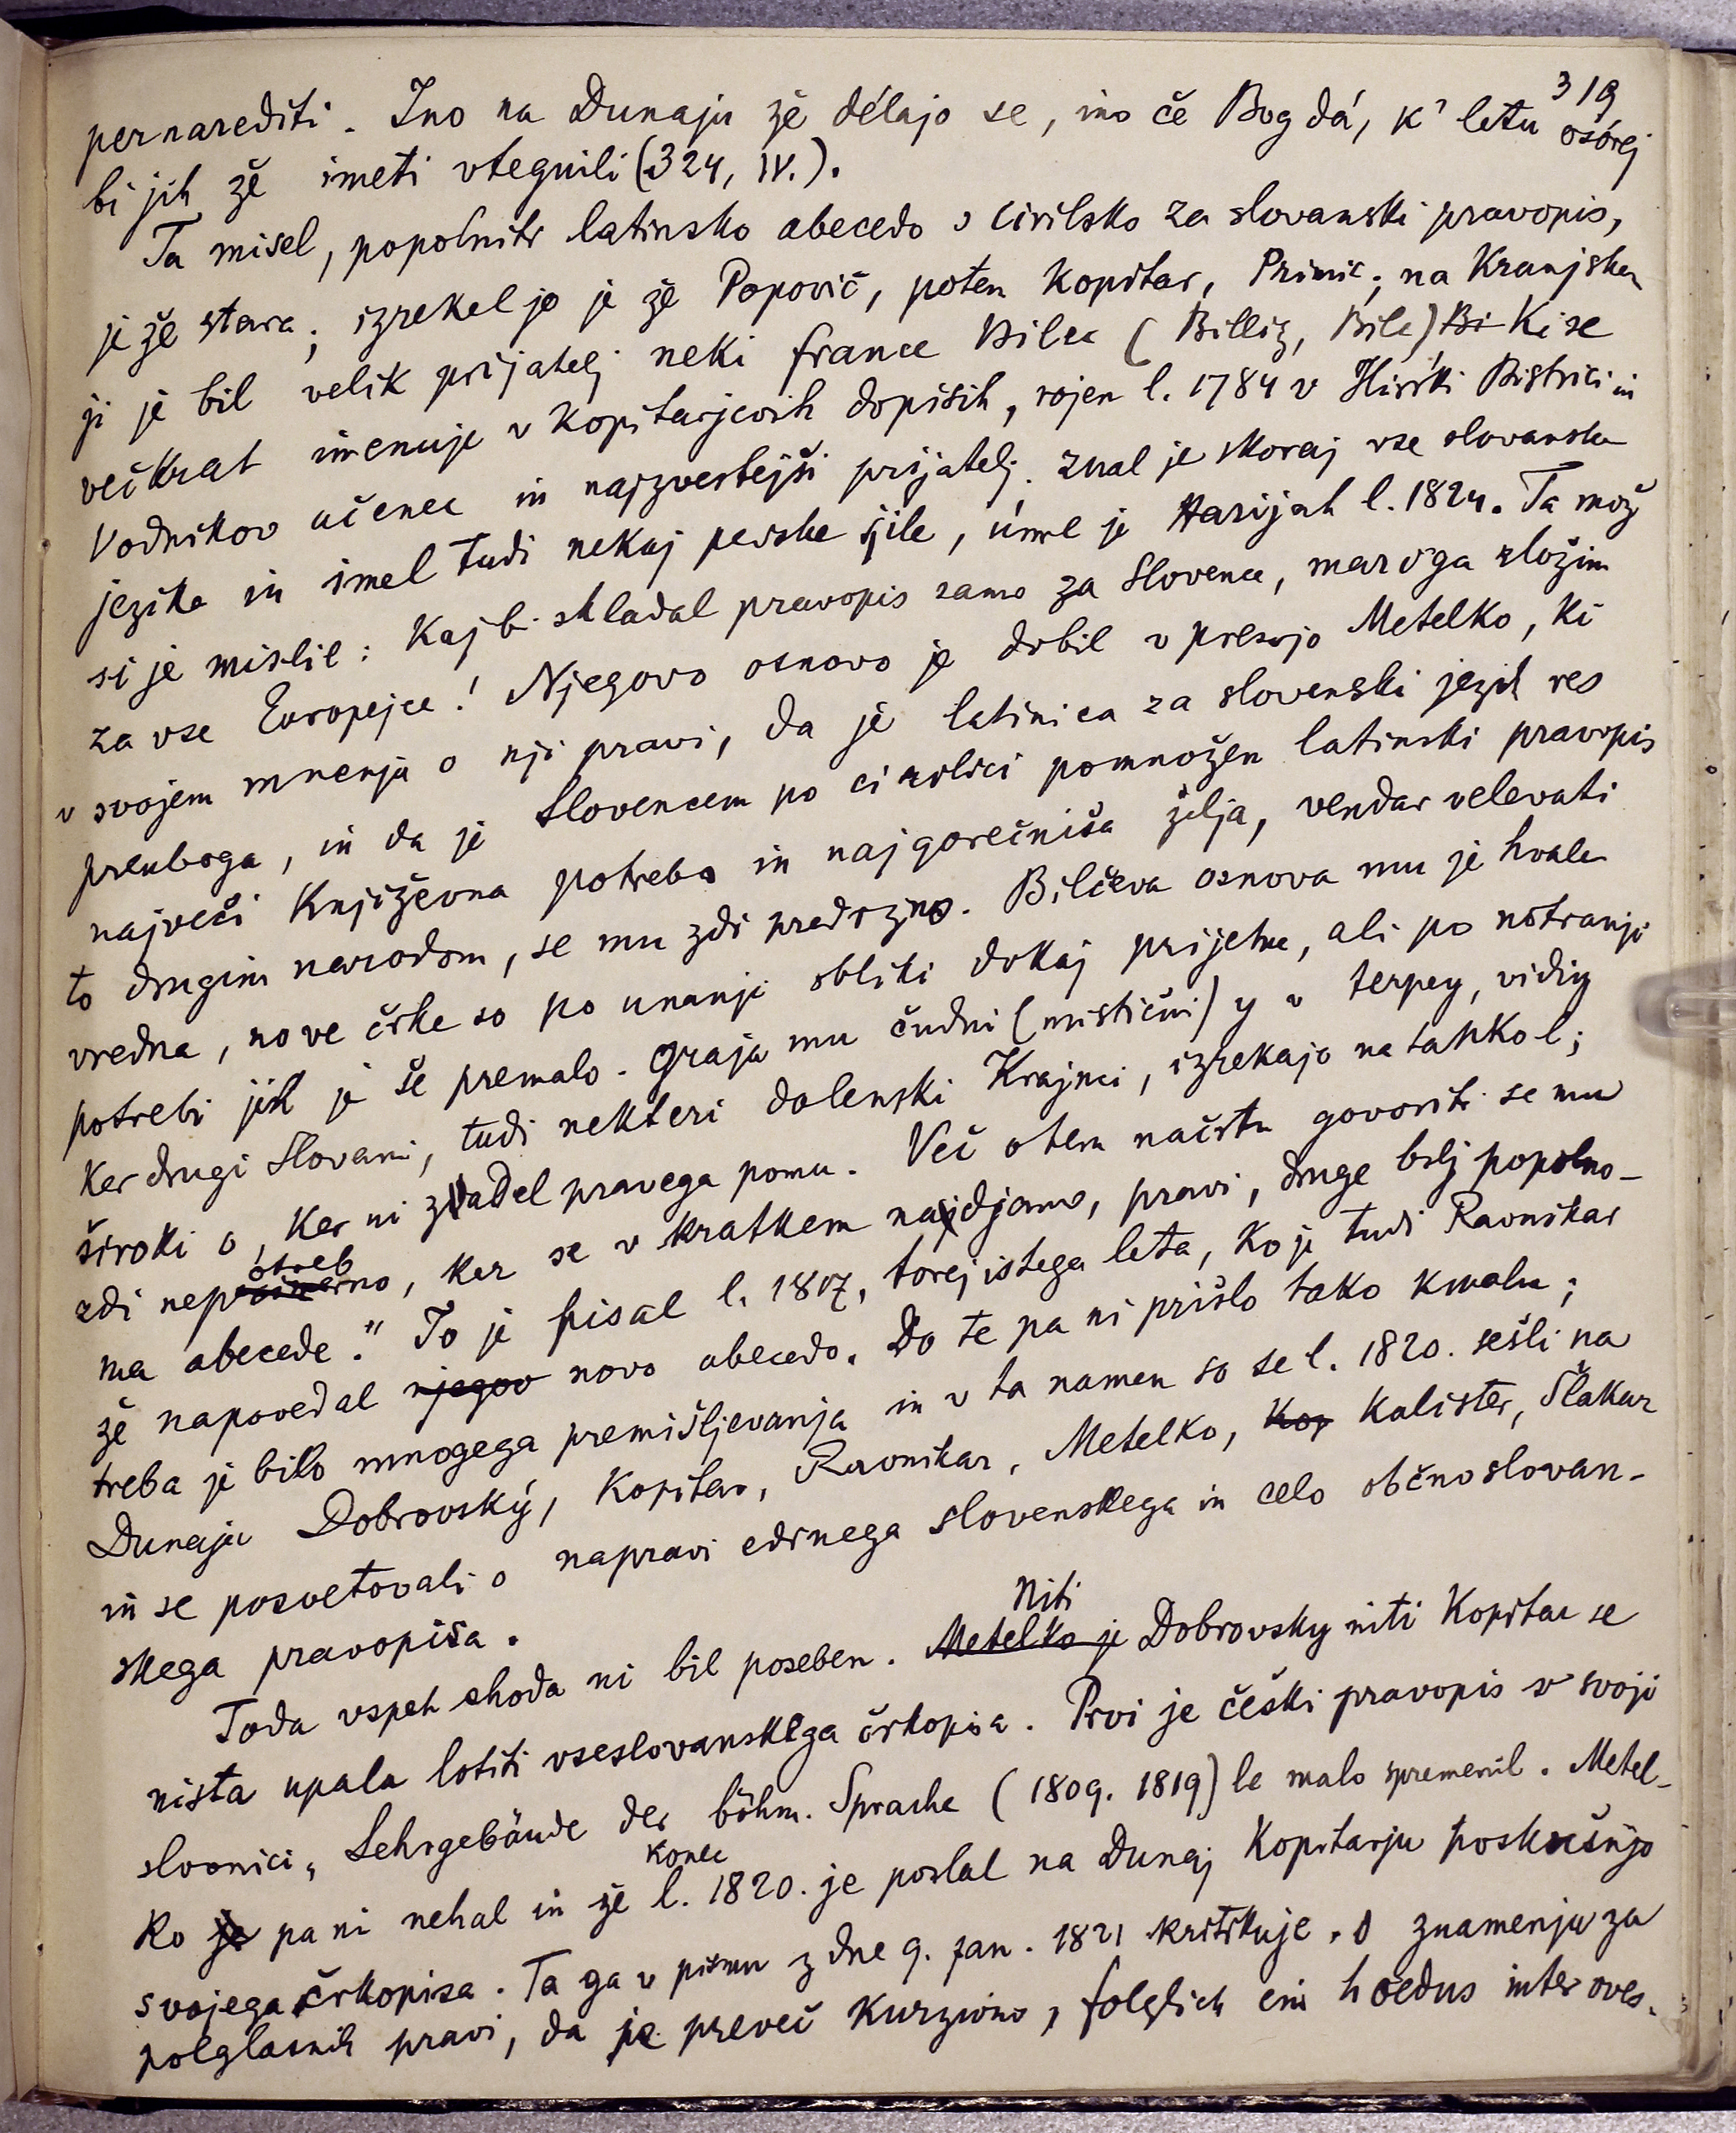 319
pernarediti. Ino na Dunaju že délajo se, ino če Bog dá, k' letu osórej
bi jih že imeti vtegnili (324, IV.).
Ta misel, popolniti latinsko abecedo s cirilsko za slovanski pravopis,
je že stara; izrekel jo je že Popovič, potem Kopitar, Primic; na Kranjskem
ji je bil velik prijatelj neki France Bilec (Billiz, Bile) Bi ki se
večkrat imenuje v Kopitarjevih dopisih, rojen l. 1784 v Ilirski Bistrici in
Vodnikov učenec in najzvestejši prijatelj. Znal je skoraj vse slovanske
jezike in imel tudi nekaj perske žile, úmrl je Harijah l. 1824. Ta mož
si je mislil: Kaj bi skladal pravopis samo za Slovence, mar o'ga zložim
za vse Europejce! Njegovo osnovo je dobil v presojo Metelko, ki
v svojem mnenju o nji pravi, da je latinica za slovenski jezik res
preuboga, in da je Slovencem po cirilici pomnožen latinski pravopis
največi književna potreba in najgorečniša želja, vendar velevati
to drugim narodom, se mu zdi predrzno. Bilčeva osnova mu je hvale
vredna, nove črke so po unanji obliki dokaj prijetne, ali po notranji
potrebi jih je še premalo. Graja mu čudni (mistični) y v terpey, vidiy
ker drugi Slovani, tudi nekteri dolenski Krajnci, izrekajo na tahko l;
široki o, ker ni zadel pravega pomu. Več o tem načrtu govoriti se mu
zdi nepotrebno, ker se v kratkem najdjamo, pravi, druge bolj popolno-
ma abecede." To je pisal l. 1817, torej istega leta, ko je tudi Ravnikar
že napovedal njegov novo abecedo. Do te pa ni prišlo tako kmalu;
treba je bilo mnogega premišljevanja in v ta namen so se l. 1820. sešli na
Dunaju Dobrovský, Kopitar, Ravnikar, Metelko, Kop Kalister, Šlakar
in se posvetovali o napravi edinega slovenskega in celo občnoslovan-
skega pravopisa.
Toda vspeh shoda ni bil poseben. Metelko je Niti Dobrovsky niti Kopitar se
nista upala lotiti vseslovanskega črkopisa. Prvi je češki pravopis v svoji
slovnici „Lehrgebäude der böhm. Sprache (1809. 1819) le malo spremenil. Metel-
ko je pa ni nehal in že konec l. 1820. je poslal na Dunaj Kopitarju poskušnjo
svojega črkopisa. Ta ga v pismu z dne 9. jan. 1821 kritikuje. O znamenju za
polglasnik pravi, da je preveč kurzivno, folglich ein hoedus inter oves.